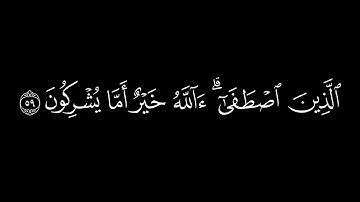 ٱلَّذِينَ ٱصْطَفَىٰٓ ۗ ءَآللَّهُ خَيْرٌ أَمَّا يُشْرِكُونَ ٥٩